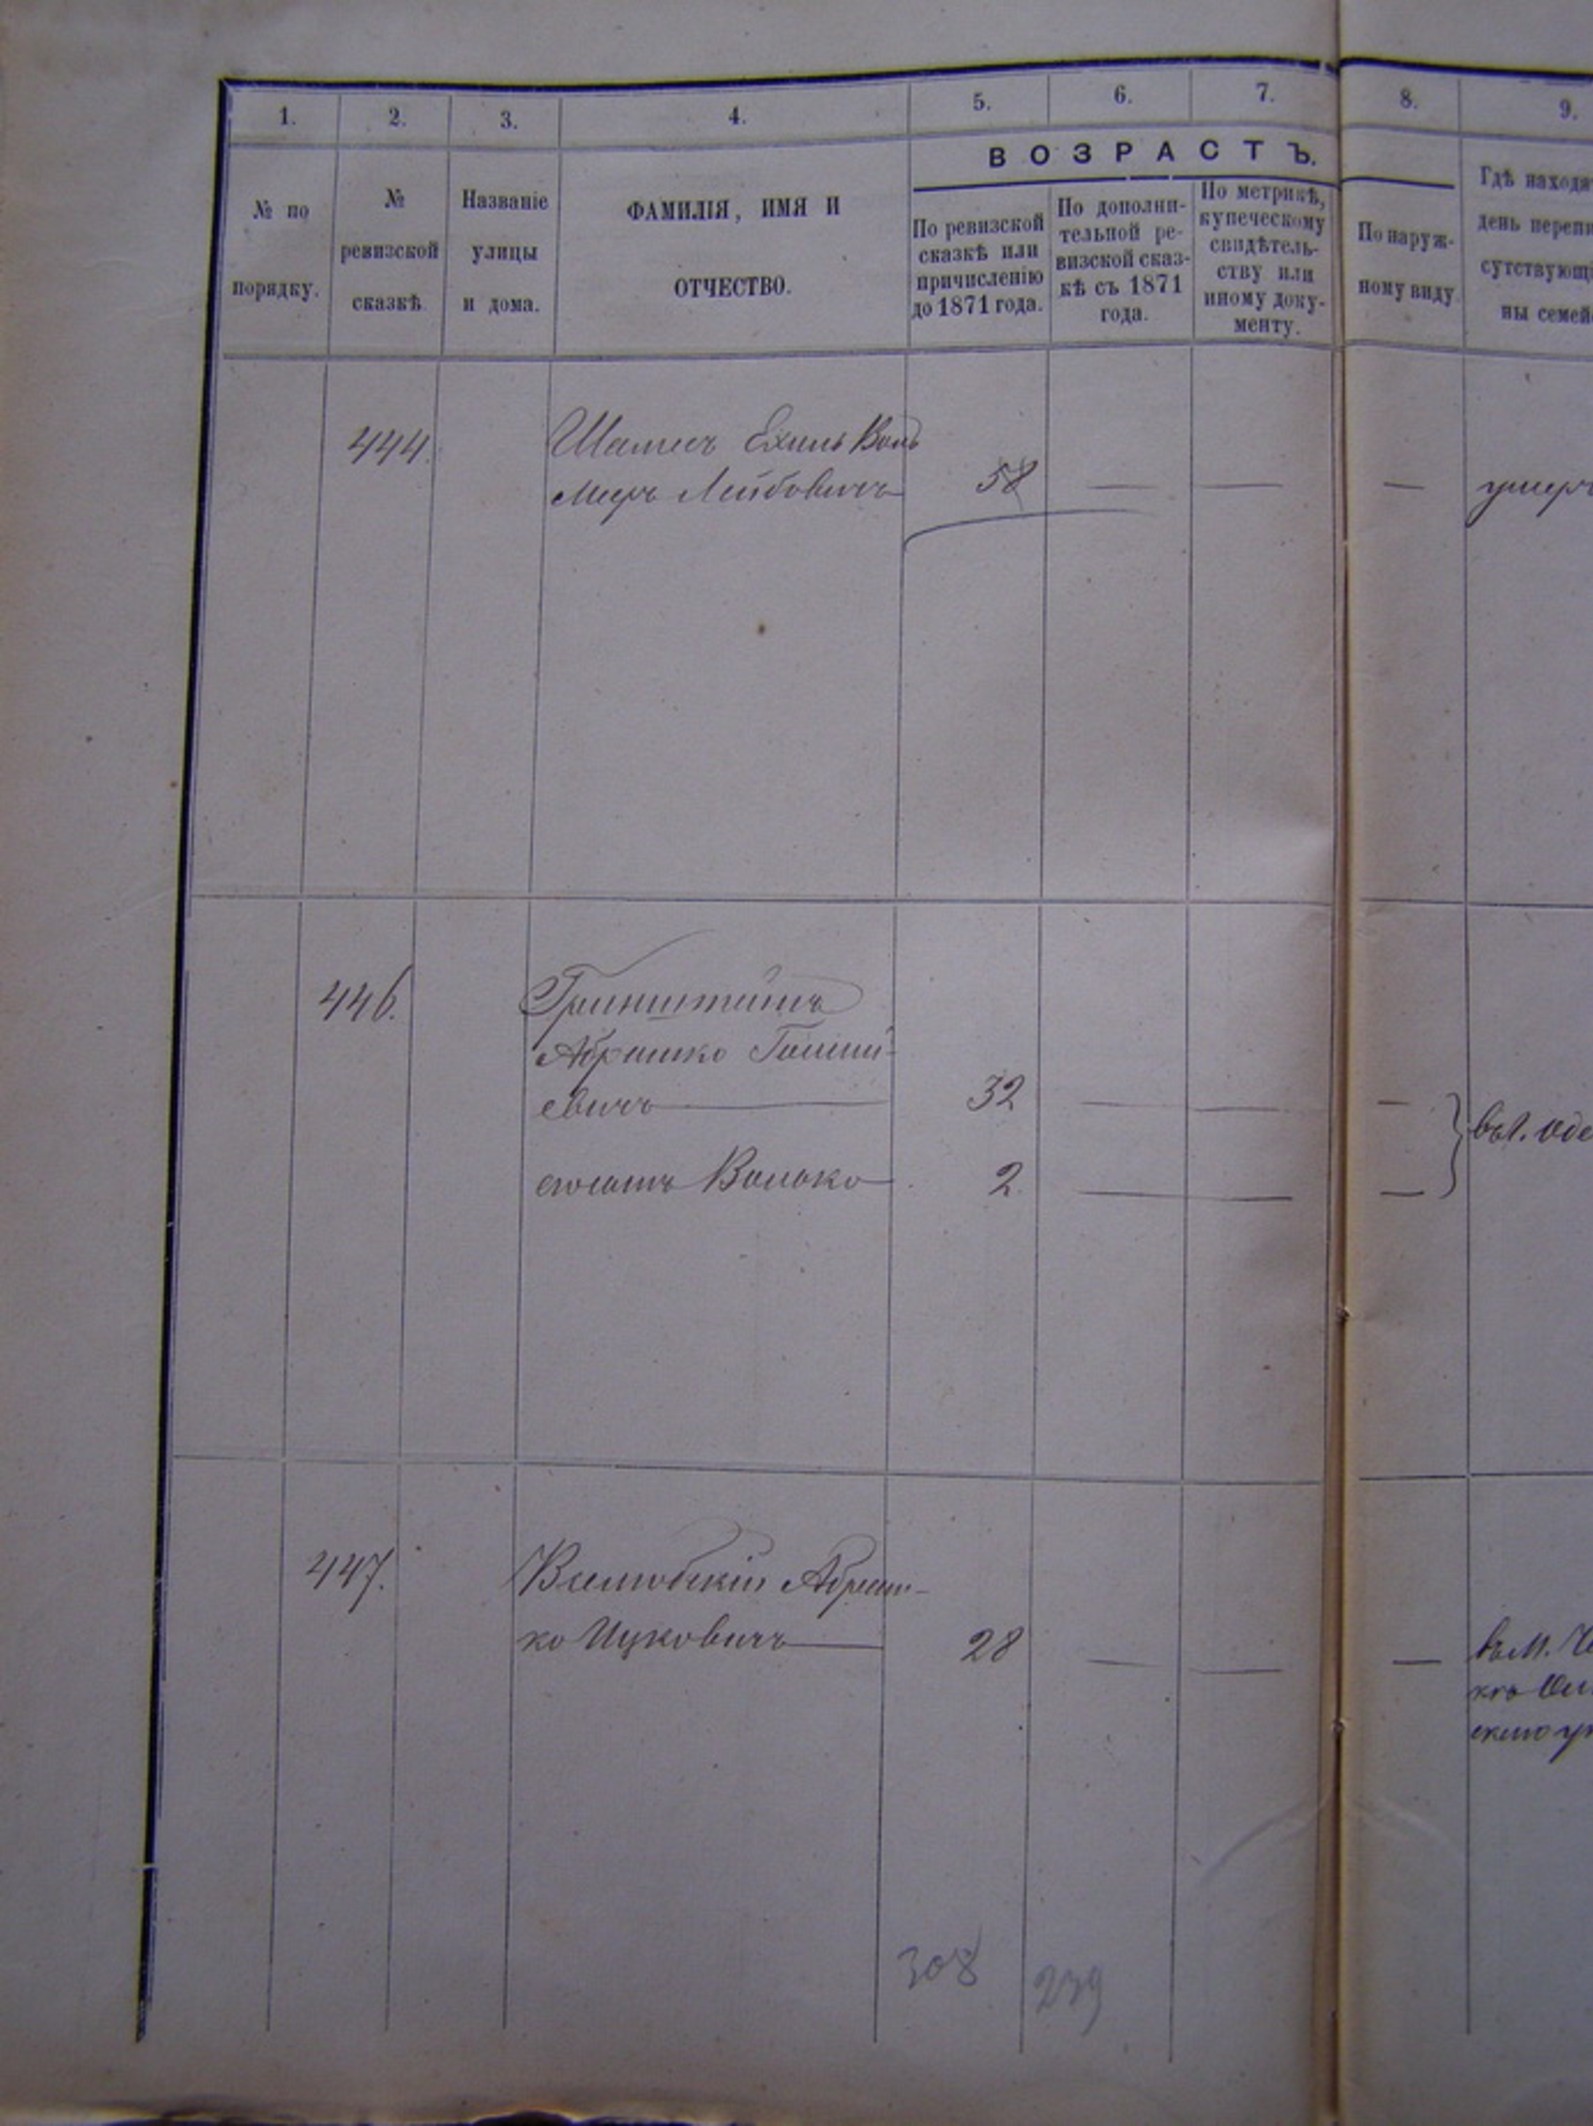 1. 2. 3. 4. 5. 6. 7. 8. 9.
ВОЗРАСТЪ.
№ по порядку.
№ ревизской сказкѣ.
Названіе улицы и дома.
ФАМИЛІЯ, ИМЯ И ОТЧЕСТВО.
По ревизской сказкѣ или причисленію до 1871 года.
По дополнительной ревизской сказкѣ съ 1871 года.
По метрикѣ, купеческому свидѣтельству или иному документу.
По наружному виду.
Гдѣ находя
день переп
сутствующ
ны семей
444. Шамесъ Ехиль Воль
Меръ Лейбовичъ 58 — — — умеръ
446. Гринштейнъ
Абрашко
евичъ 32 — — —
въ г. Оде
сынъ Волько 2 — — —
447. Абраш-
ко Ицковичъ 28 — — — въ м.
308 239